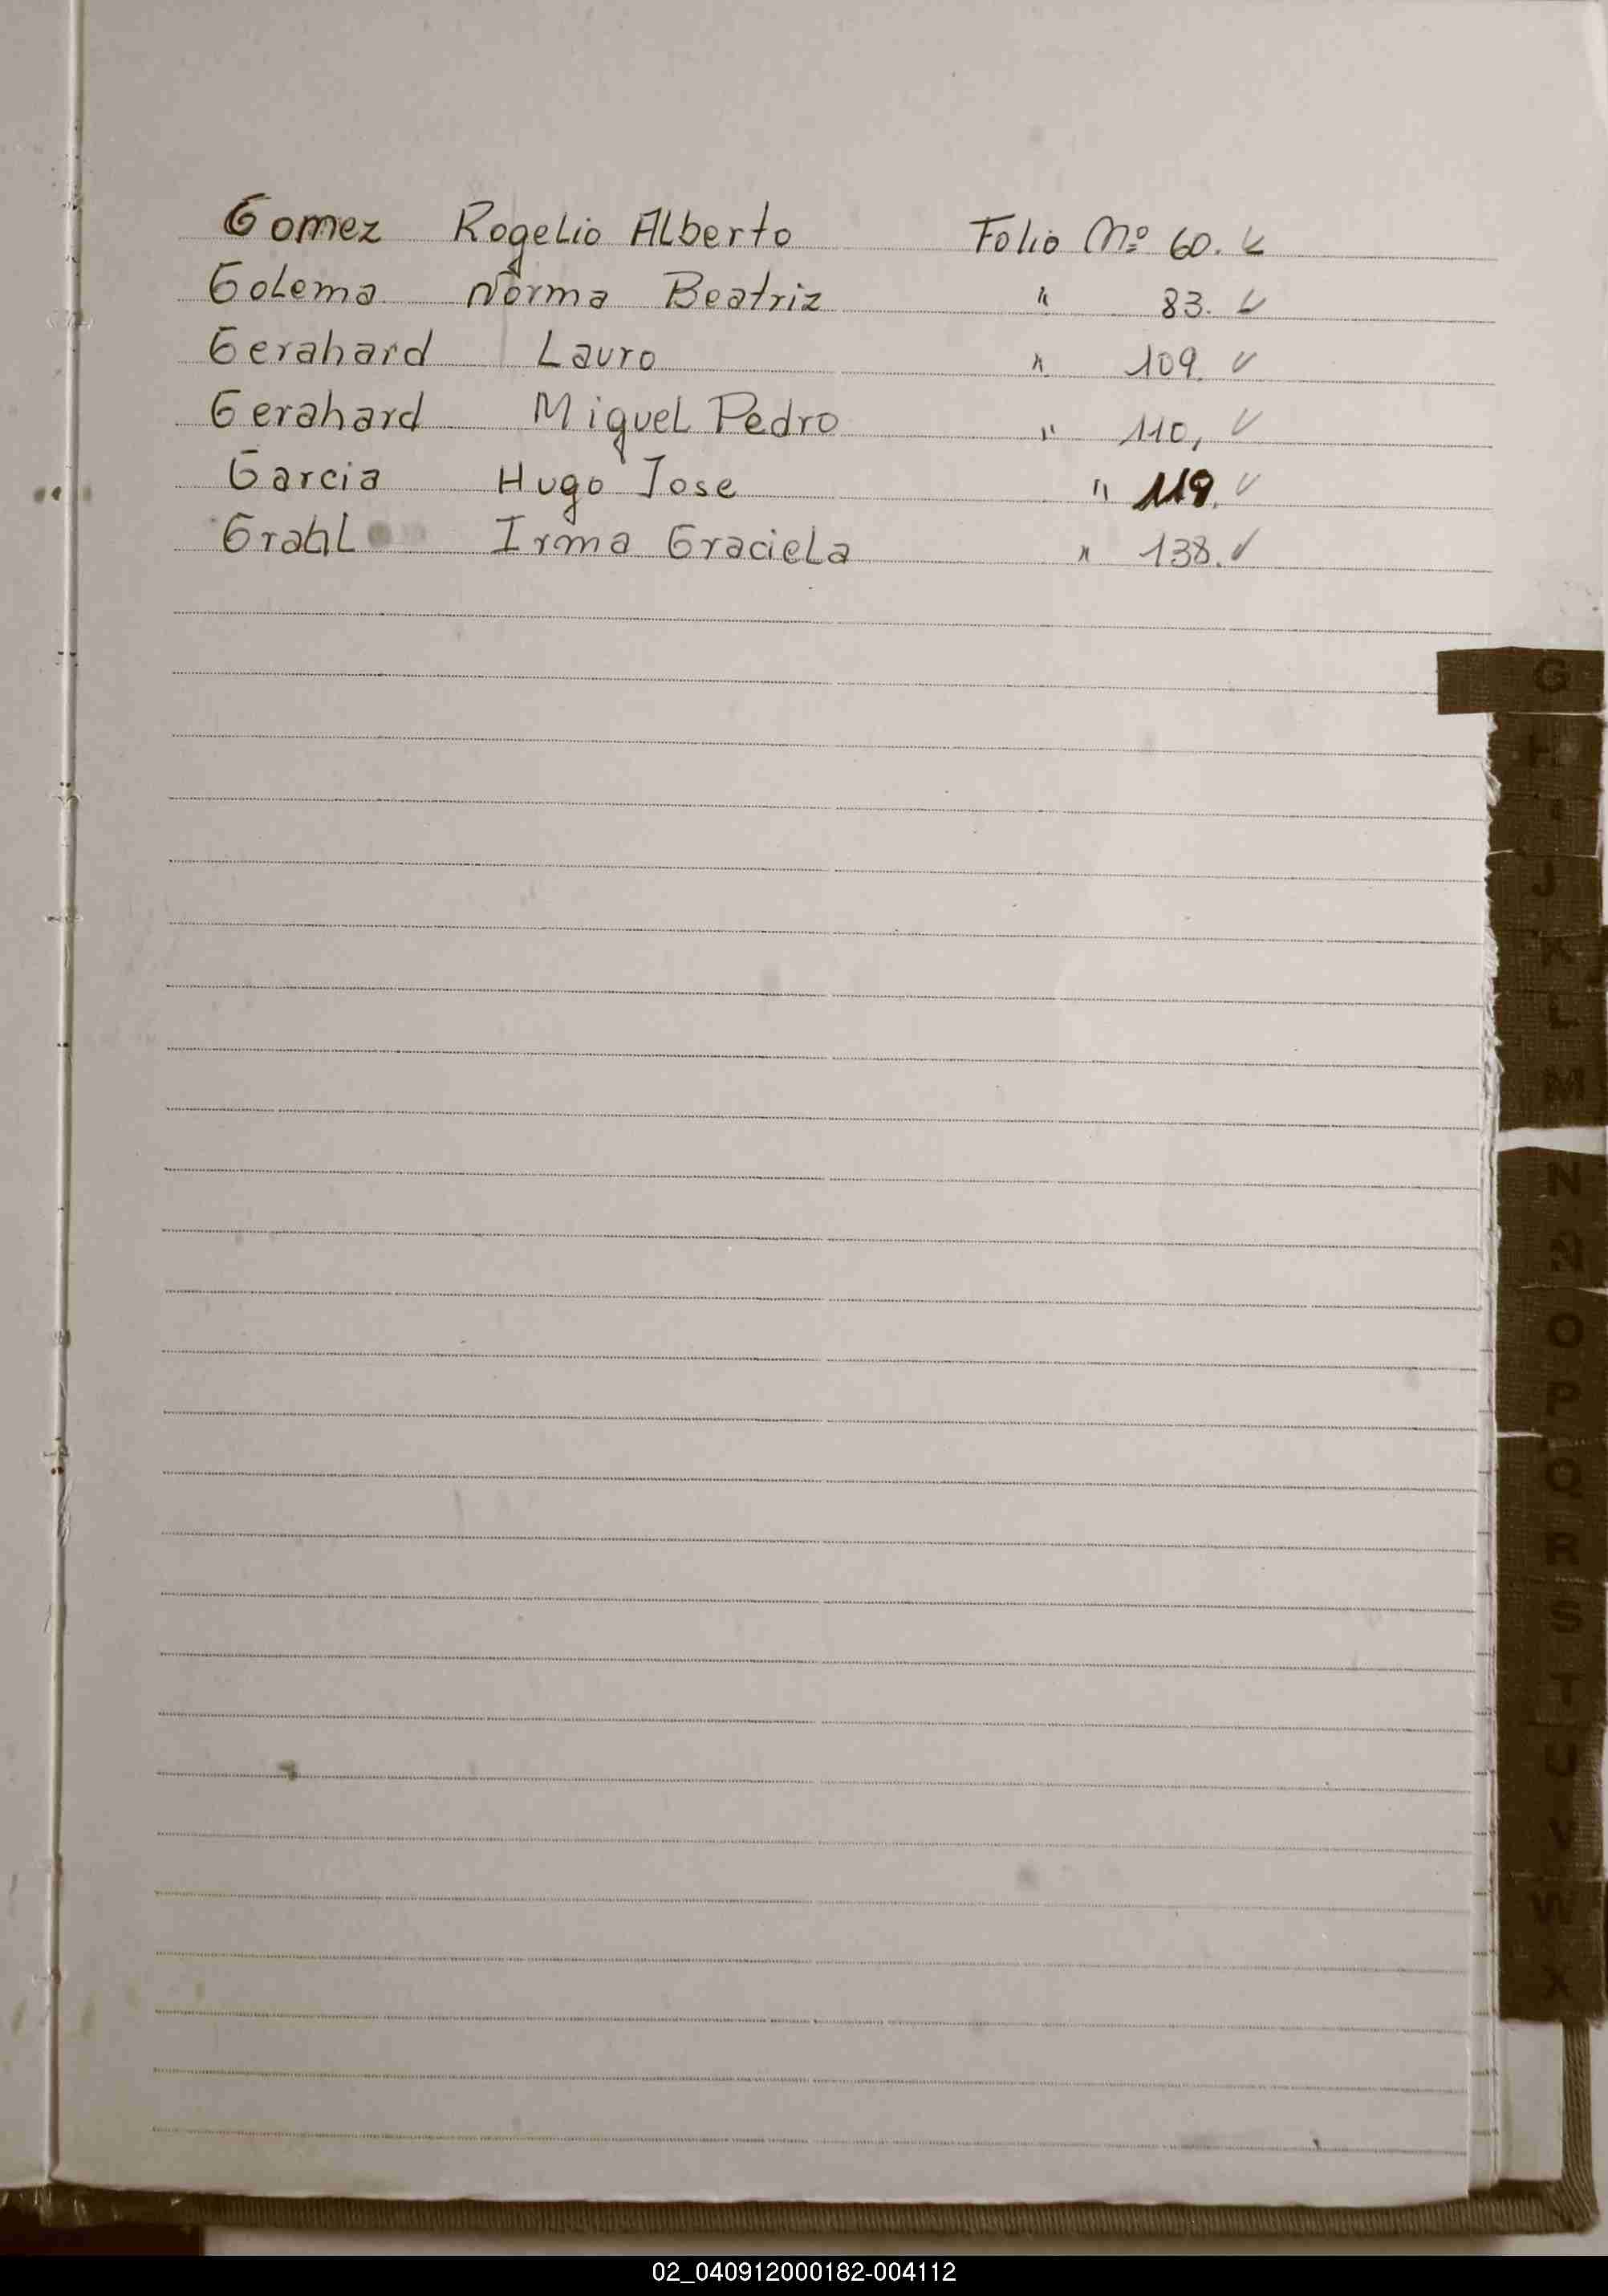 Gomez Rogelio Alberto Folio Nº 60. ✓
Golema Norma Beatriz " 83. ✓
Gerahard Lauro " 109. ✓
Gerahard Miguel Pedro " 110, ✓
Garcia Hugo Jose " 119. ✓
Grahl Irma Graciela " 138. ✓
G
H
I
J
K
L
M
N
Ñ
O
P
Q
R
S
T
U
V
W
X
02_040912000182-004112